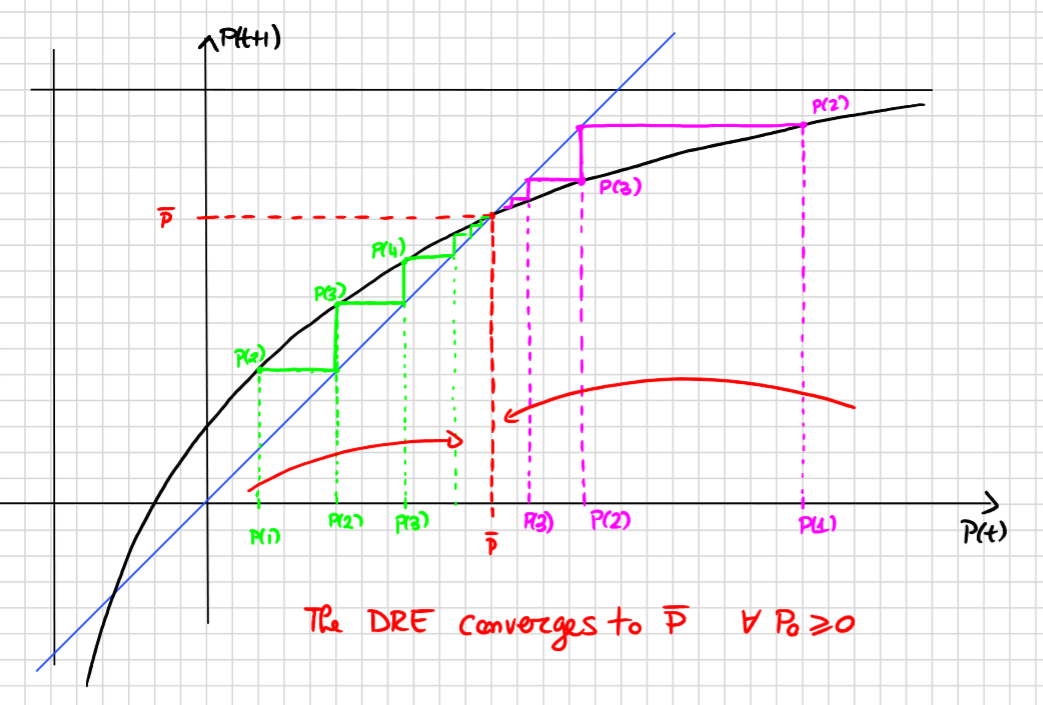 P(t+1)
P(2)
P(3)
P̄
P(4)
P(3)
P(2)
P(1)
P(2)
P(3)
P̄
P(3)
P(2)
P(1)
P(t)
The DRE converges to P̄ ∀ P₀ ≥ 0